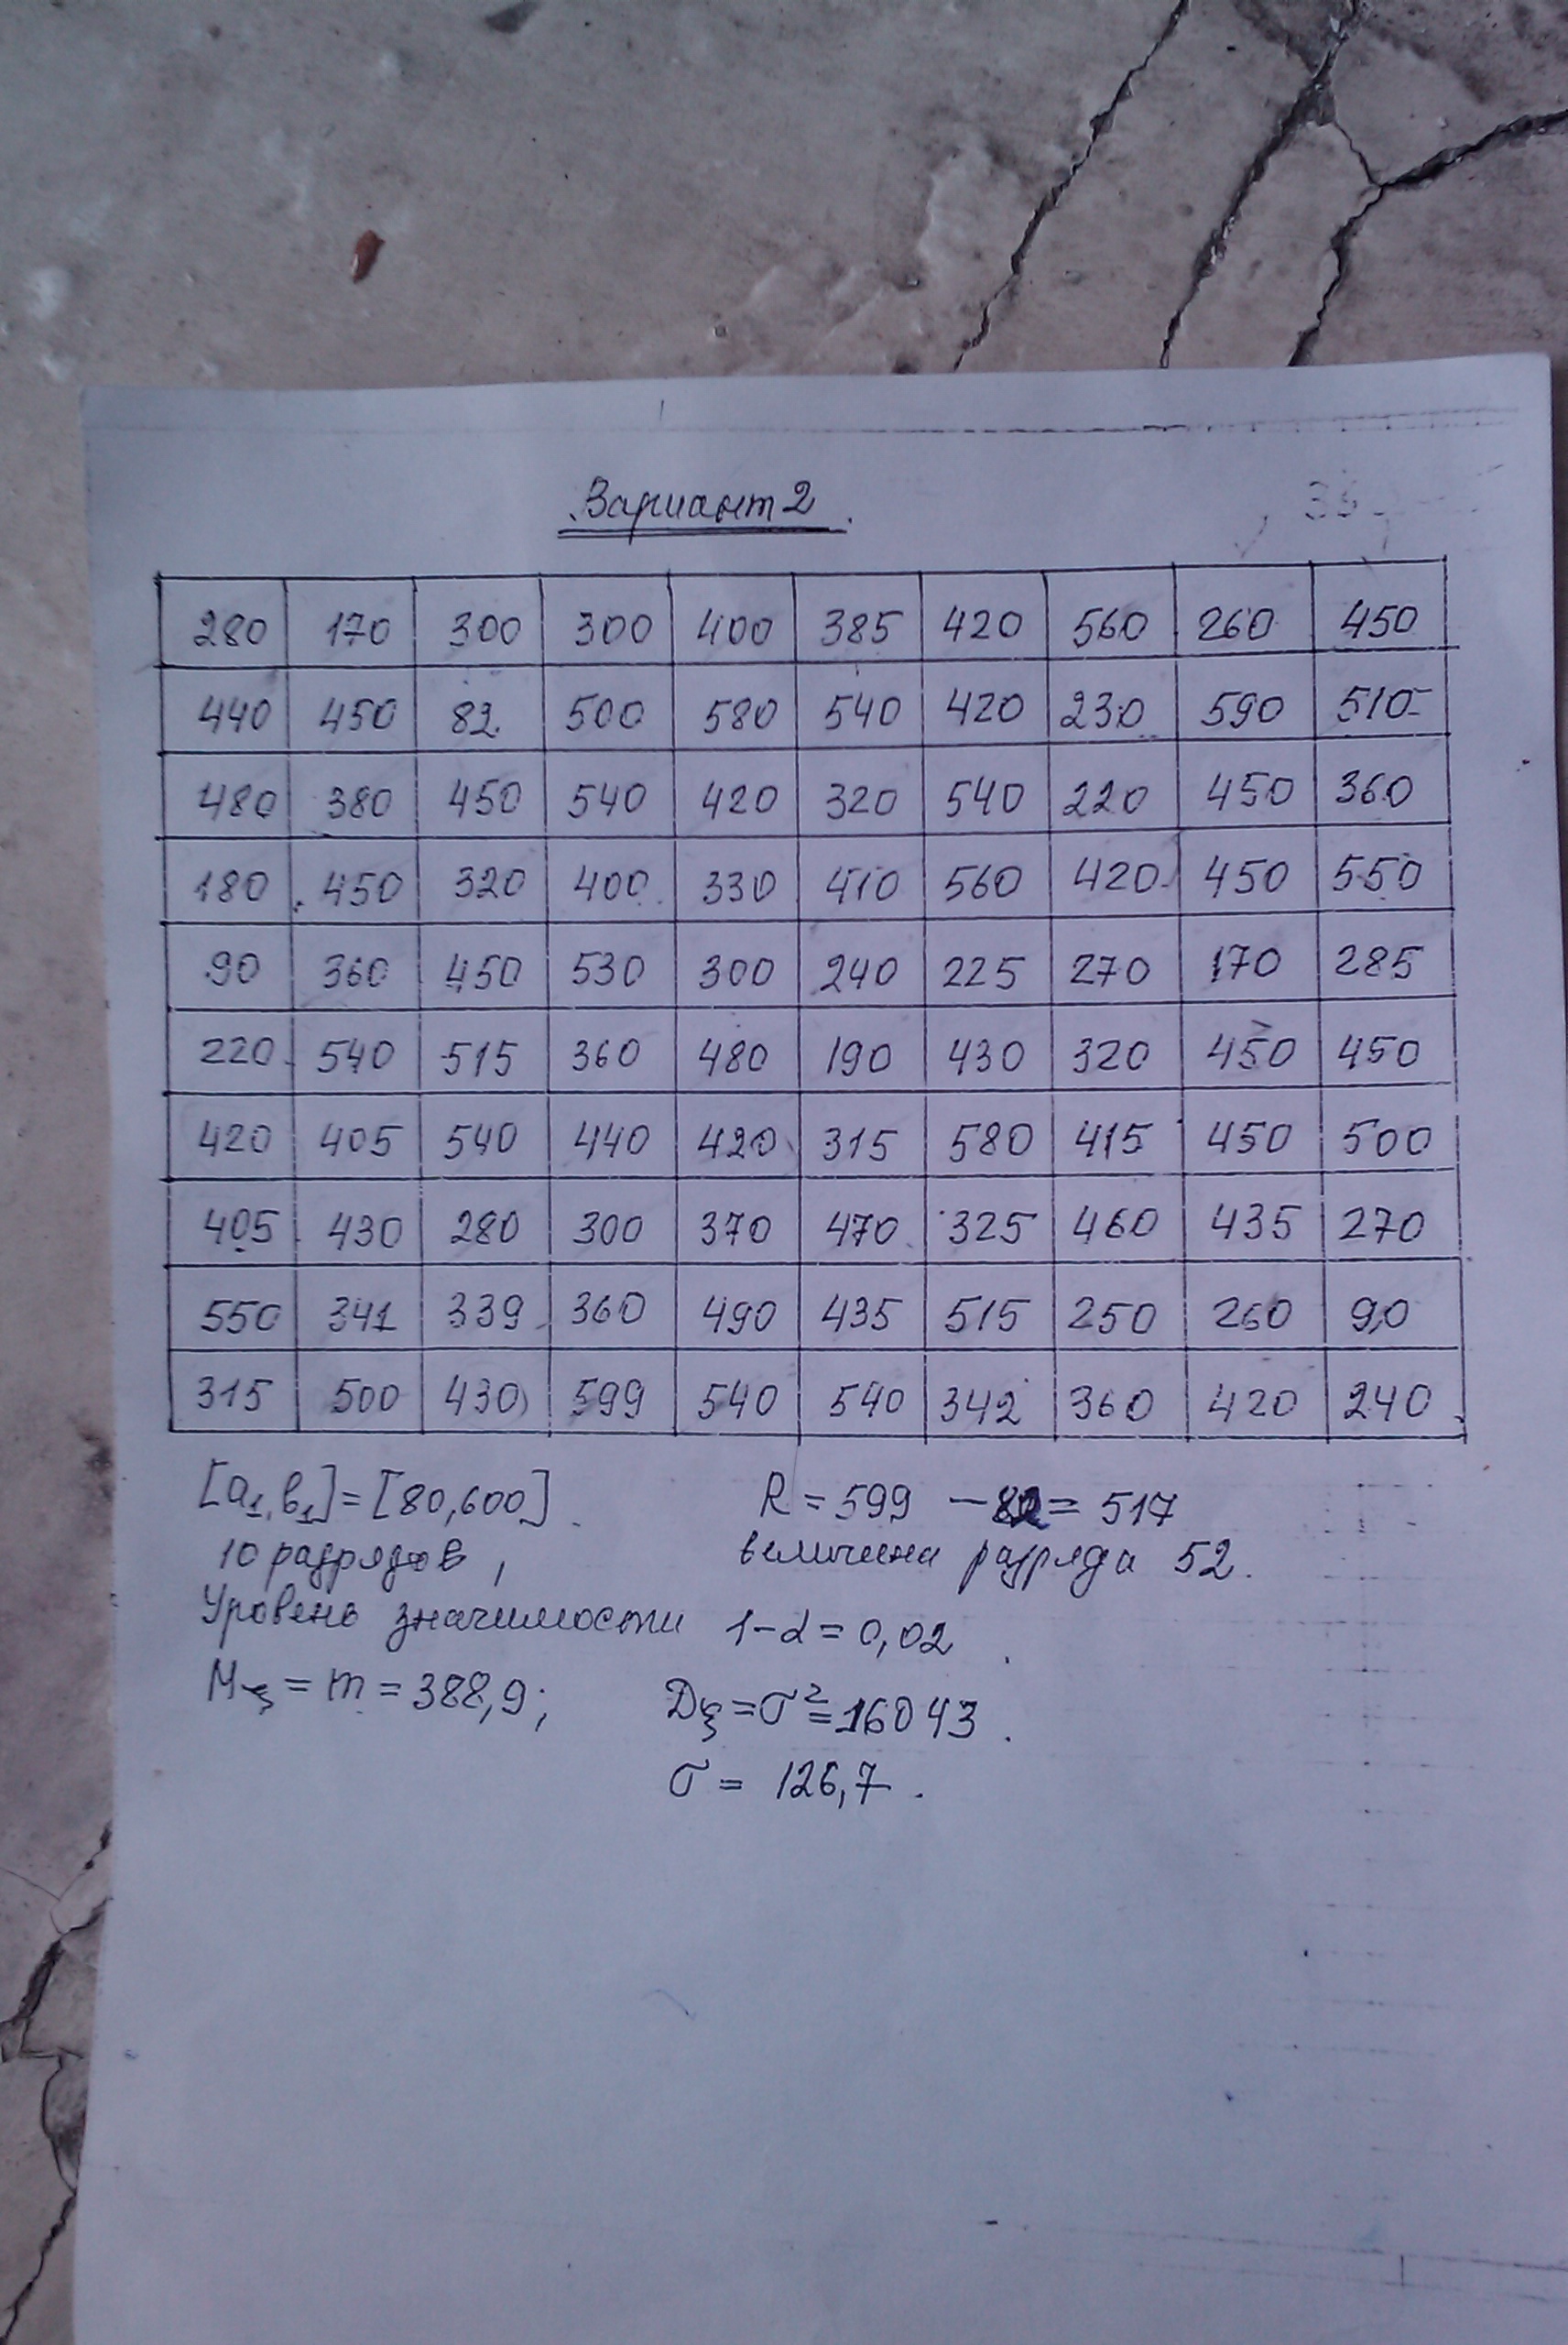 Вариант 2.
280 170 300 300 400 385 420 560 260 450
440 450 82 500 580 540 420 230 590 510
480 380 450 540 420 320 540 220 450 360
180 450 320 400 330 410 560 420 450 550
90 360 450 530 300 240 225 270 170 285
220 540 515 360 480 190 430 320 450 450
420 405 540 440 420 315 580 415 450 500
405 430 280 300 370 470 325 460 435 270
550 341 339 360 490 435 515 250 260 90
315 500 430 599 540 540 342 360 420 240
[a₁, b₁] = [80,600] R = 599 – 82 = 517
10 разрядов, величина разряда 52.
Уровень значимости 1-α = 0,02.
Mξ = m = 388,9; Dξ = σ² = 16043.
σ = 126,7.